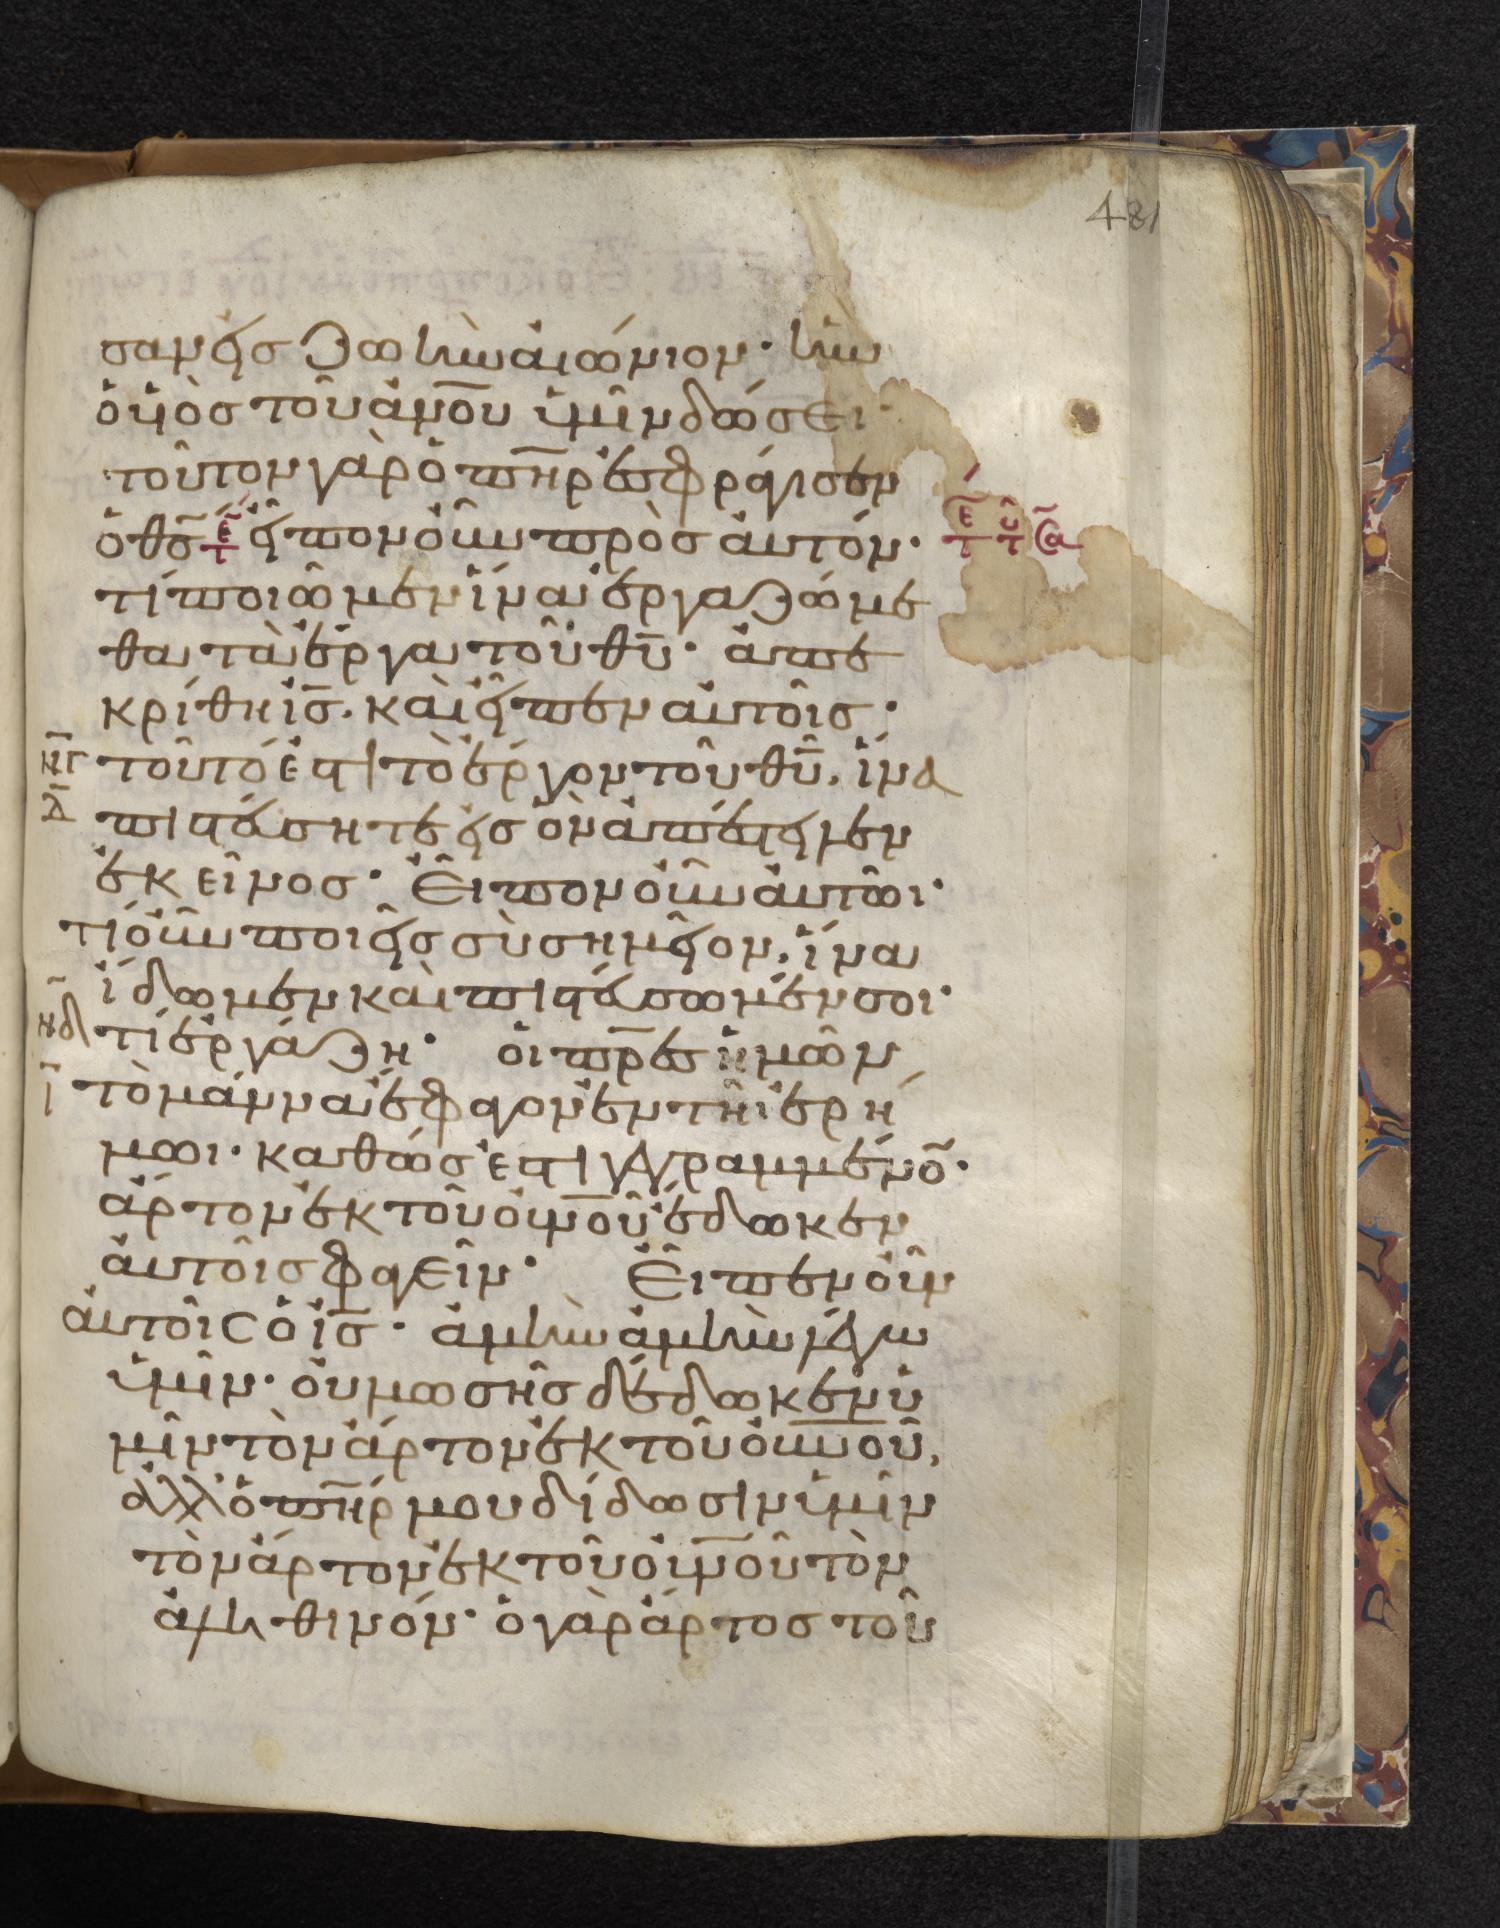 481
σαν εἰς ζωὴν αἰώνιον· ἣν
ὁ υἱὸς τοῦ ἀνου ὑμῖν δώσει·
τοῦτον γὰρ ὁ πηρ ἐσφράγισεν
ὁ θς ετ εἶπον οὖν πρὸς αὐτόν·
τί ποιῶμεν ἵνα ἐργαζώμε
θα τὰ ἔργα τοῦ θυ· ἀπε
κρίθη ις. καὶ εἶπεν αὐτοῖς·
νγ τοῦτό ἐστι τὸ ἔργον τοῦ θυ, ἵνα
λ πιστεύσητε εἰς ὃν ἀπέστειλεν
ἐκεῖνος· Εἶπον οὖν αὐτῶι·
τί οὖν ποιεῖς σὺ σημεῖον, ἵνα
ἴδωμεν καὶ πιστεύσωμέν σοι·
νδ τί ἐργάζη· οἱ πρες ἡμῶν
ι τὸ μάννα ἔφαγον ἐν τῆι ἐρή
μωι· καθώς ἐστι γεγραμμένο·
ἄρτον ἐκ τοῦ οὐνοῦ ἔδωκεν
αὐτοῖς φαγεῖν· Εἶπεν οὖν
αὐτοῖς ὁ ις· ἀμὴν ἀμὴν λέγω
ὑμῖν· οὐ μωσῆς δέδωκεν ὑ
μῖν τὸν ἄρτον ἐκ τοῦ οὐνοῦ,
ἀλλ' ὁ πηρ μου δίδωσιν ὑμῖν
τὸν ἄρτον ἐκ τοῦ οὐνοῦ τὸν
ἀληθινόν· ὁ γὰρ ἄρτος τοῦ